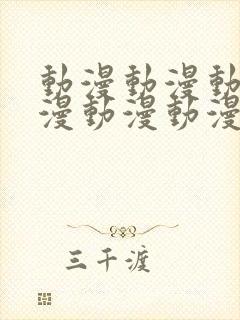 動漫動漫動
漫動漫動漫
三千渡